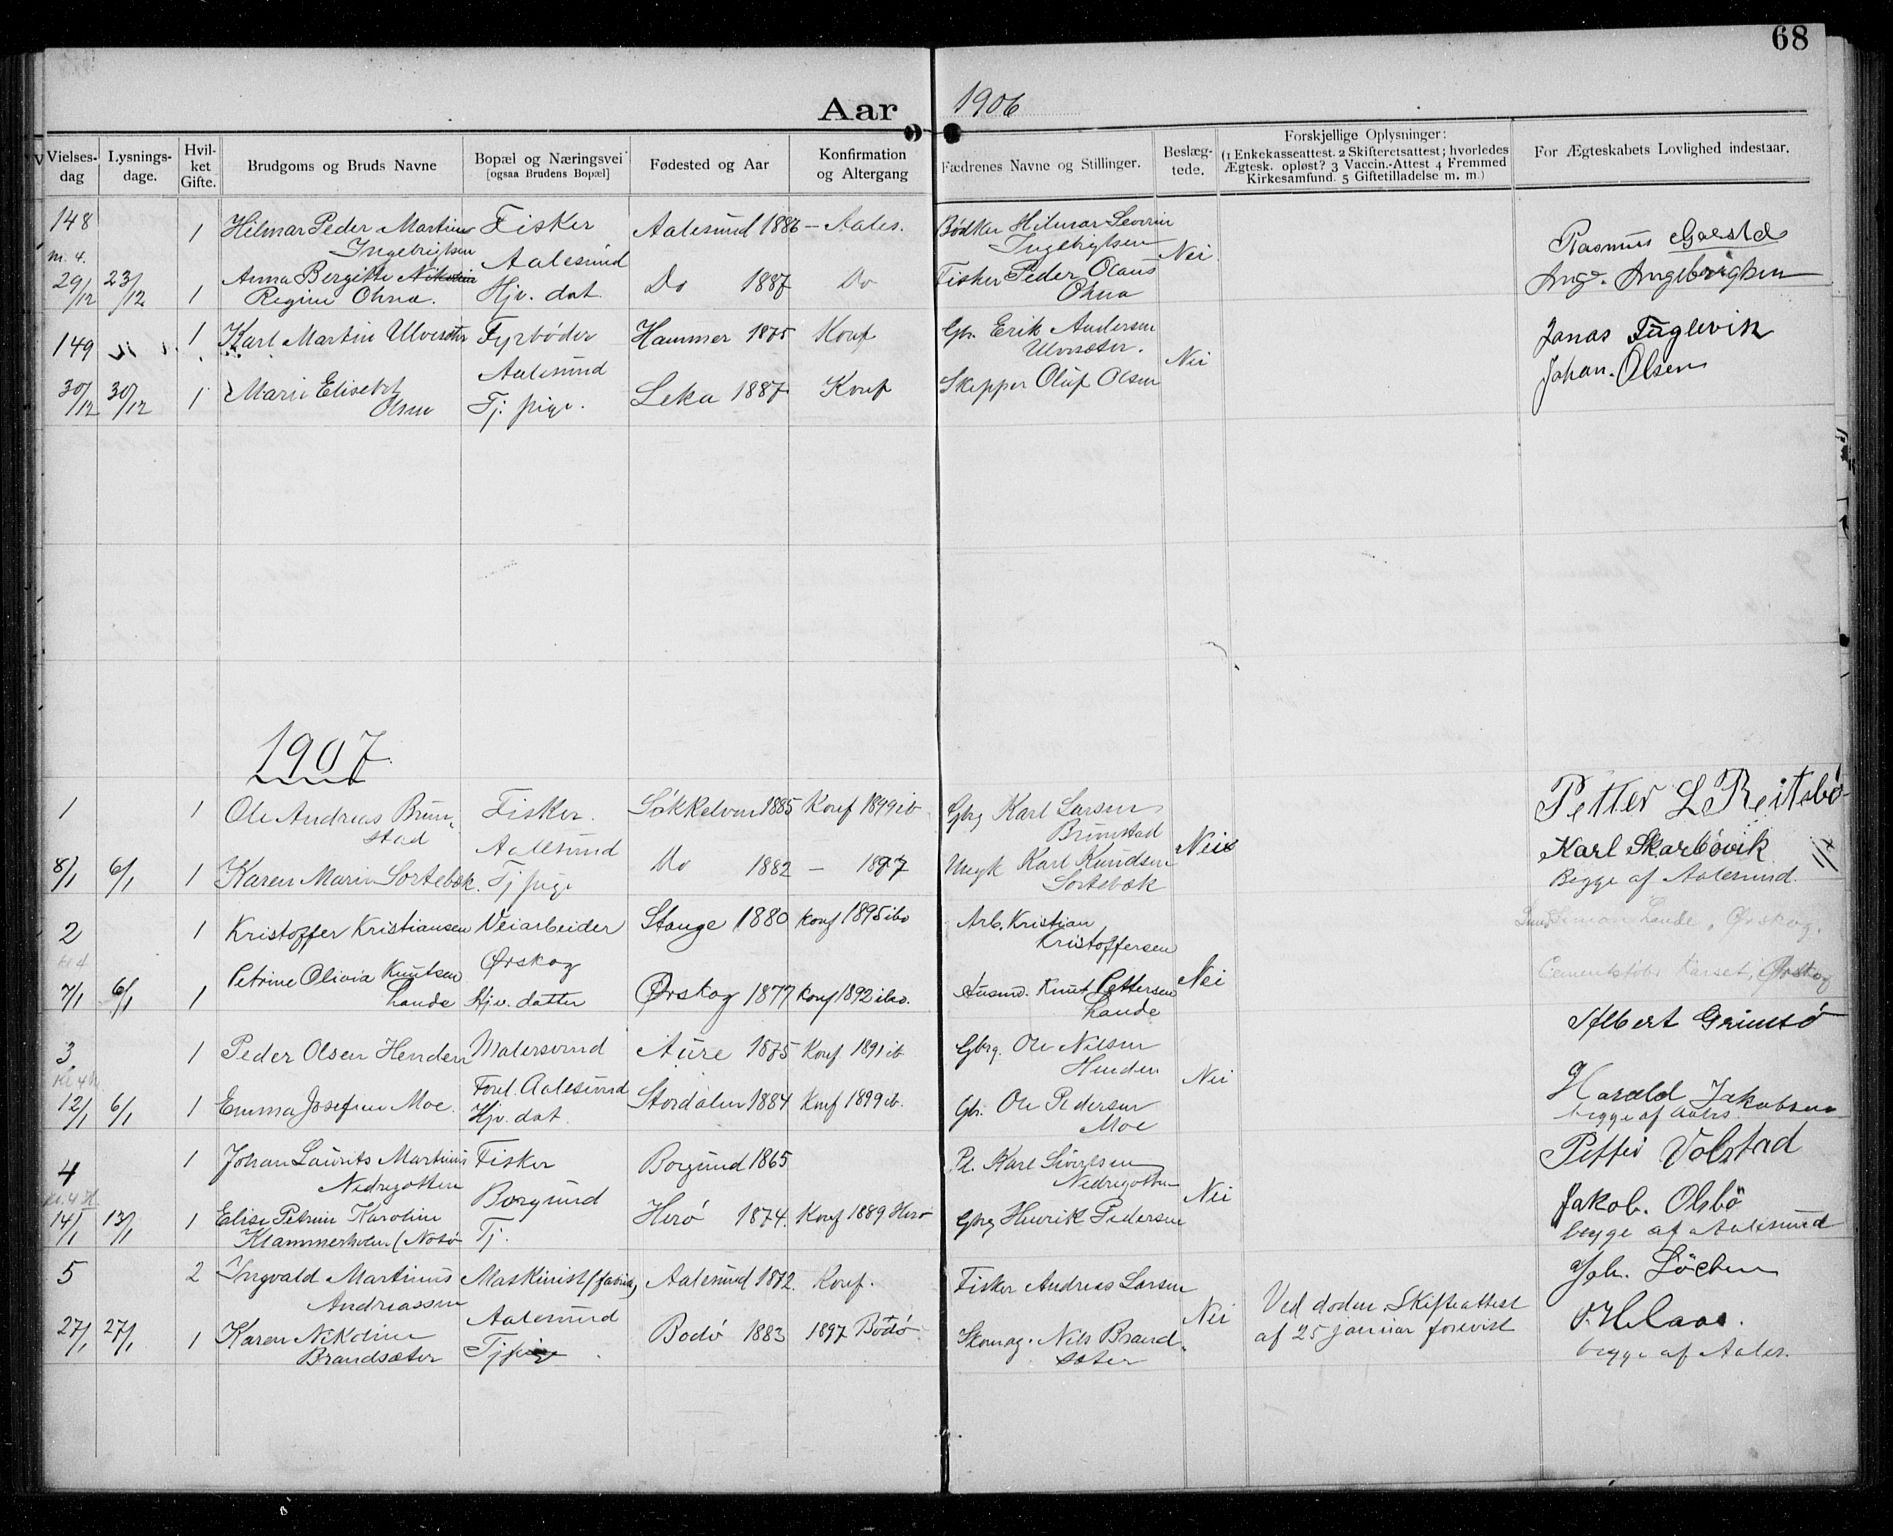 68
Aar 1906
Vielses-dag
Lysnings-dage.
Hvil-ket Gifte.
Brudgoms og Bruds Navne
Bopæl og Næringsvei [ogsaa Brudens Bopæl]
Fødested og Aar
Konfirmation og Altergang
Fædrenes Navne og Stillinger.
Beslæg-tede.
Forskjellige Oplysninger: (1 Enkekasseattest. 2 Skifteretsattest; hvorledes Ægtesk. opløst? 3 Vaccin.-Attest 4 Fremmed Kirkesamfund. 5 Giftetilladelse m. m.)
For Ægteskabets Lovlighed indestaar.
148 1 Hilmar Peder Martin Fisker Aalesund 1886 – Aales. Bødker Hilmar Severin Rasmus
Ingebrigtsen Aalesund Ingebrigtsen Nei
29/12 23/12 Anna Bergitte Nikolin Do 1887 Do Fisker Peder Olaus Ing. Ingebrigtsen
1 Regine Ohna. Hjv. dat. Ohna
149 1 Karl Martin Ulvesæter Fyrbøder Hammer 1875 Konf Gbr. Erik Andersen Jonas Fuglevik
Aalesund Ulvesæter. Nei Johan. Olsen
30/12 30/12 1 Marie Elisebet Leka 1887 Konf Skipper Oluf Olsen
Olsen Tj. pige.
1907
1 1 Ole Andreas Brun- Fisker. Søkkelven 1885 Konf 1899 ib Gbrg Karl Larsen Petter L Reitebø
stad Aalesund Brunstad
8/1 6/1 1 Karen Marie Sortebæk. Tj pige Do 1882 – 1897 Karl Knudsen Nei Karl Skarbøvik
Sortebæk Begge af Aalesund.
2 1 Kristoffer Kristiansen Veiarbeider Stange 1880 Konf 1895 ibo Arb. Kristian Simon Lande, Ørskog.
Ørskog Kristoffersen
7/1 6/1 1 Petrine Olivia Knutsen Ørskog 1877 Konf 1892 ibo. Husmd. Knut Pettersen Nei Karset, Ørskog
Lande Hjv. datter Lande
3 1 Peder Olsen Henden Malersvend Aure 1875 Konf 1891 ib Gbrg. Ole Nilsen Albert Grimsø
Kl 4 Forel. Aalesund Henden Nei
12/1 6/1 1 Emma Josefine Moe. Hjv. dat. Stordalen 1884 Konf 1899 ib. Gbr. Ole Pedersen Harald Jakobsen
Moe begge af Aales.
4 1 Johan Laurits Martinus Fisker Borgund 1865 Karl Sivertsen Petter Volstad
Nedregotten Borgund Nedregotten Nei
14/1 13/1 1 Elise Petrine Karoline Tj. Herø 1874. Konf 1889 Herø Gbrg Henrik Pedersen Jakob. Olsbö
Klammerholm (Notø begge af Aalesund
5 2 Ingvald Martinus Maskinist (fabrik) Aalesund 1872. Konf. Fisker Andreas Larsen Joh. Löchen
Andreassen Aalesund Nei Ved døden Skifteattest
27/1 27/1 1 Karen Nikoline Tj pige Bodø 1883 1897 Bodø Skomag. Nils Brand- af 25 januar forevist
Brandsæter sæter begge af Aales.